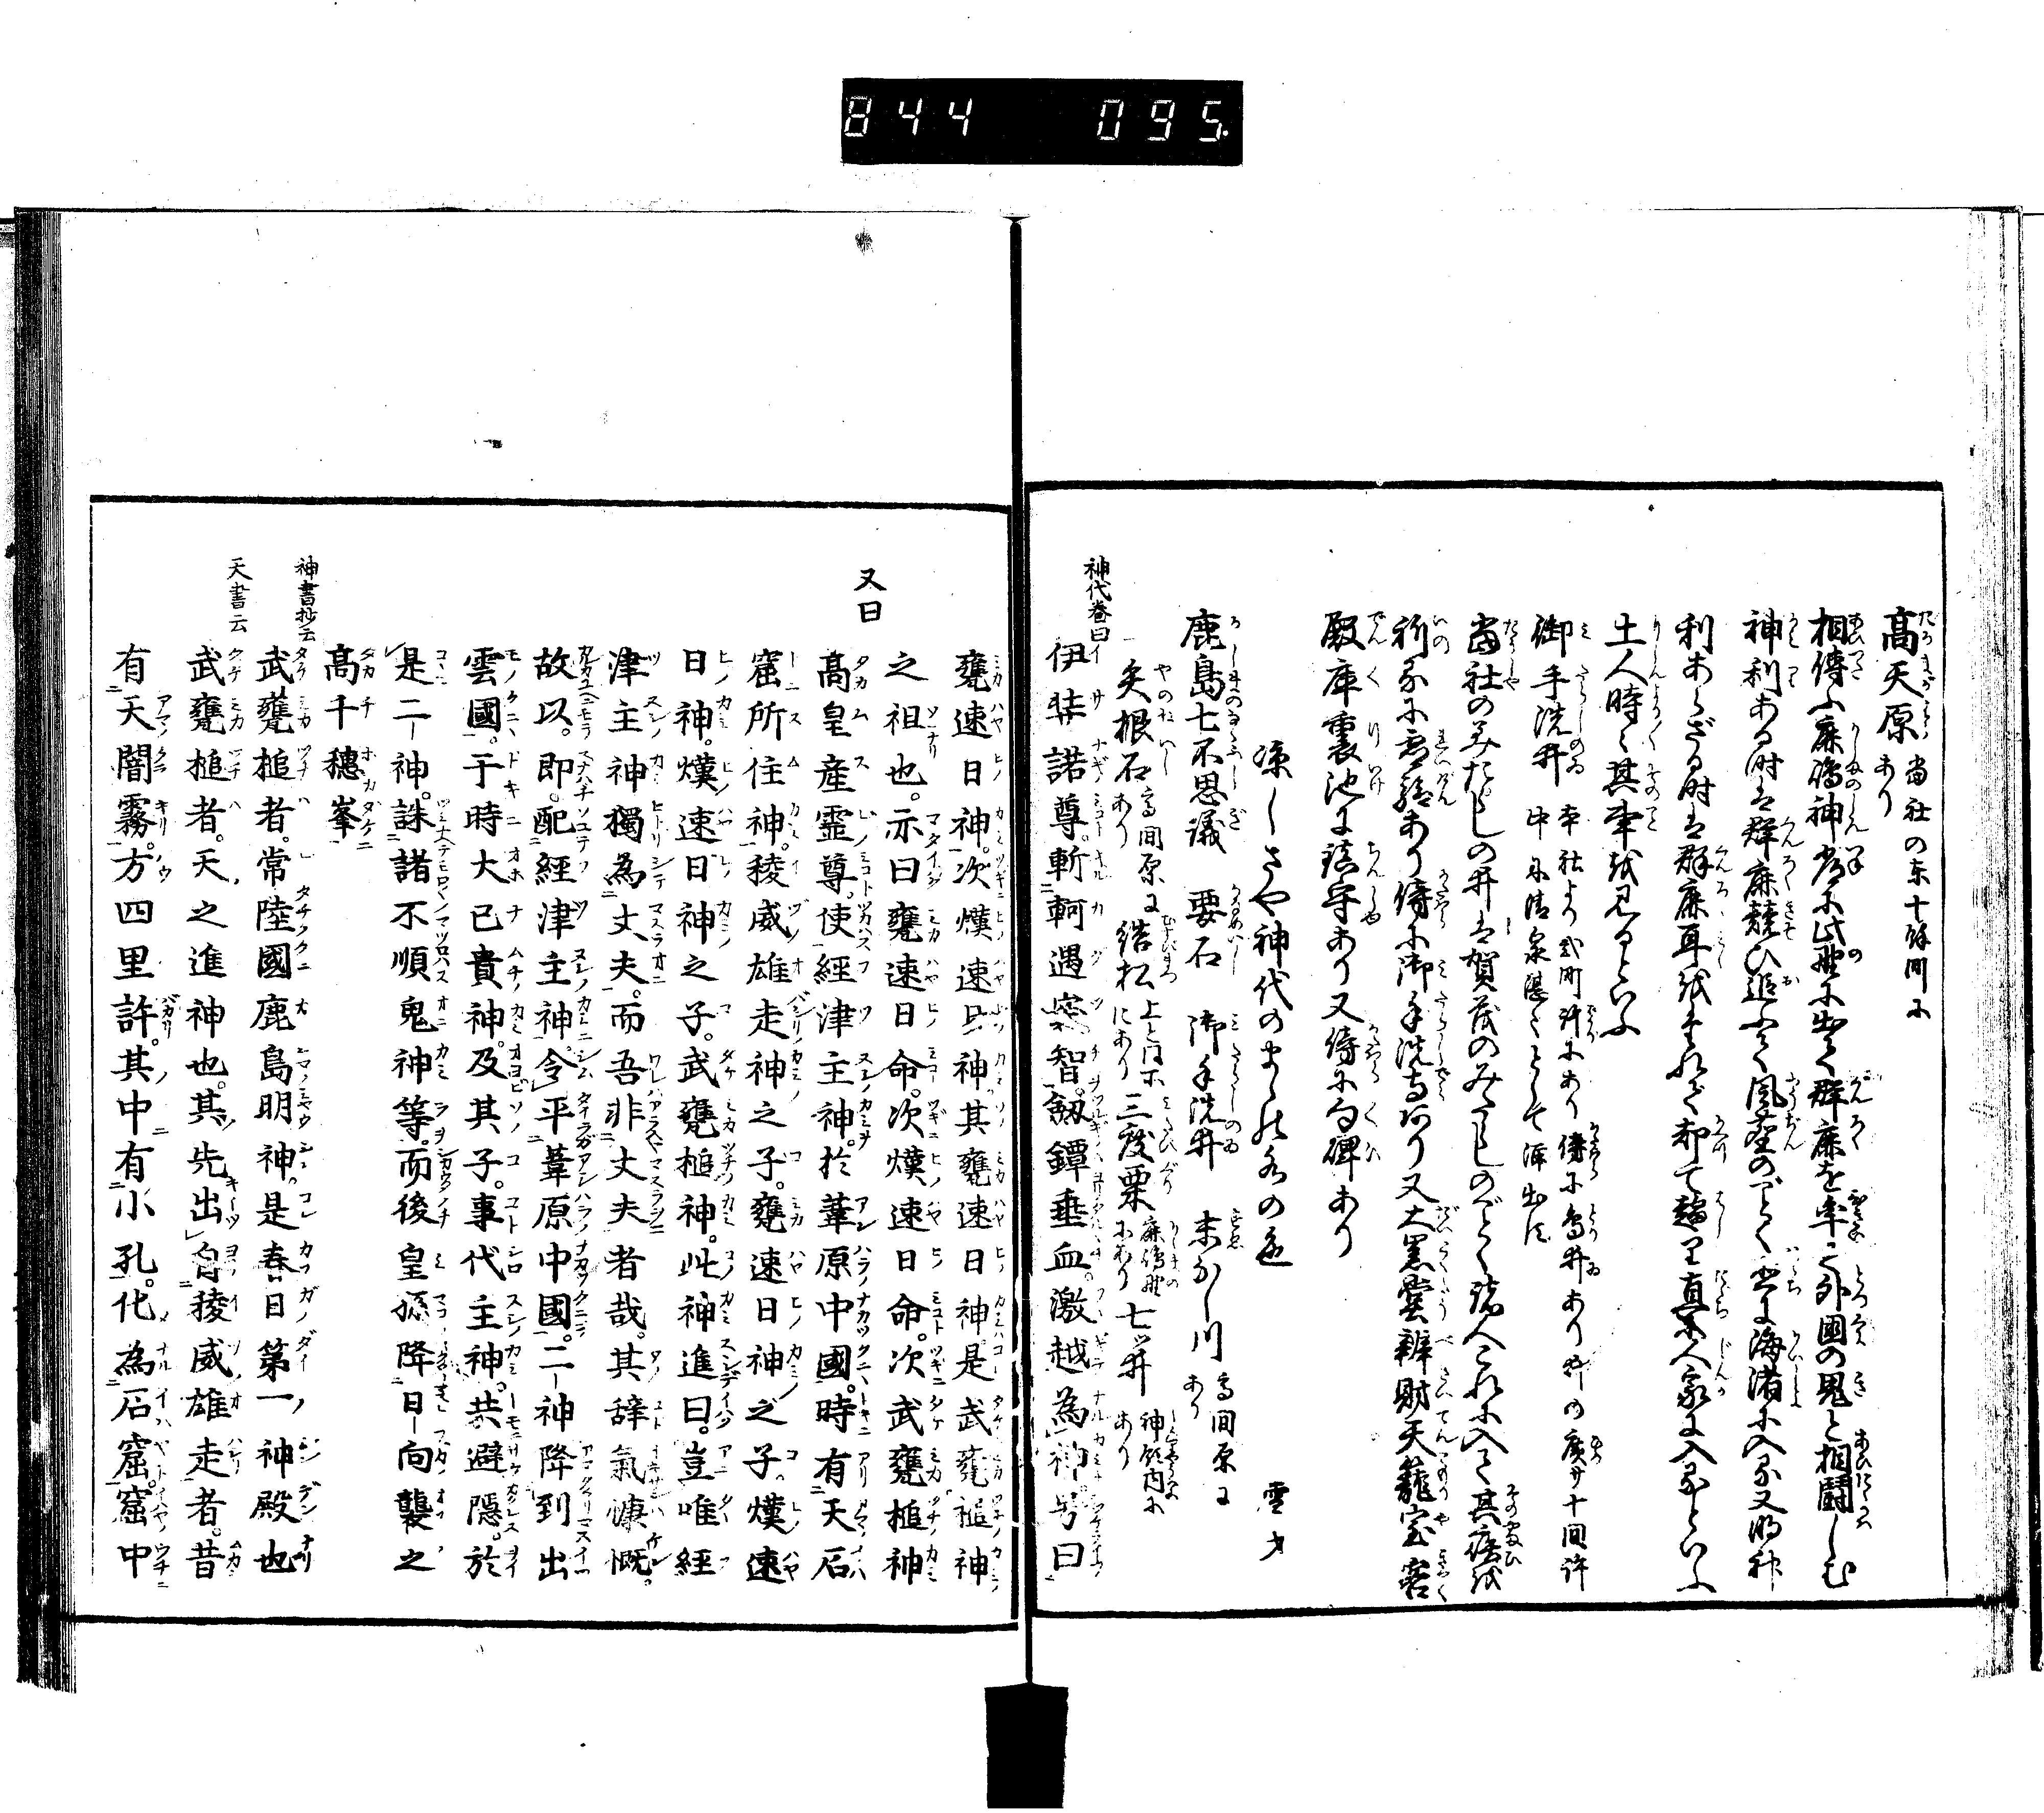 844 095.
高天原 当社の东十餘間にあり
相傳ふ鹿嶋神常に此野に出て群鹿を率て外國の鬼と相闘しむ
神利ある时は群鹿競ひ追ふて風塵のごとく空に海渚に入る又明神
利あらざる时は群鹿耳を垂れて却て趨り直に人家に入るといふ
土人時々其事を見るといふ
御手洗井 本社より弐町許にあり傍に鳥井あり
中に清泉湛々として涌出す
当社のみたらしの井は賀茂のみたらしのごとく諸人これに入て其疾を
祈るに霊験あり傍に御手洗寺あり又大黒堂辨財天籠室客
殿庫裏池に鎮守あり又傍に句碑あり
涼しさや神代のまゝの水の色 雪才
鹿島七不思議 要石 御手洗井 末なし川 高間原にあり
一矢根石 高間原にあり 結松 三度栗 鹿嶋野にあり 七ツ井 神領内にあり
神代巻曰
伊弉諾尊。斬軻遇突智。劔鐔垂血激越為神号曰
甕速日神。次熯速日神。其甕速日神。是武甕槌神
之祖也。亦曰甕速日命。次熯速日命。次武甕槌神
又曰
髙皇産霊尊。使經津主神。於葦原中國。時有天石
窟所住神。稜威雄走神之子。甕速日神之子。熯速
日神。熯速日神之子。武甕槌神。此神進曰。豈唯經
津主神獨為丈夫。而吾非丈夫者哉。其辞氣慷慨。
故以。即配經津主神。令平葦原中國。二神降到出
雲國。于時大已貴神。及其子。事代主神。共避隠。於
是二神。誅諸不順鬼神等。而後皇孫降日向襲之
髙千穗峯
神書抄云
武甕槌者。常陸國鹿島明神。是春日第一神殿也
天書云
武甕槌者。天之進神也。其先出自稜威雄走者。昔
有天闇霧。方四里許。其中有小孔。化為石窟。窟中